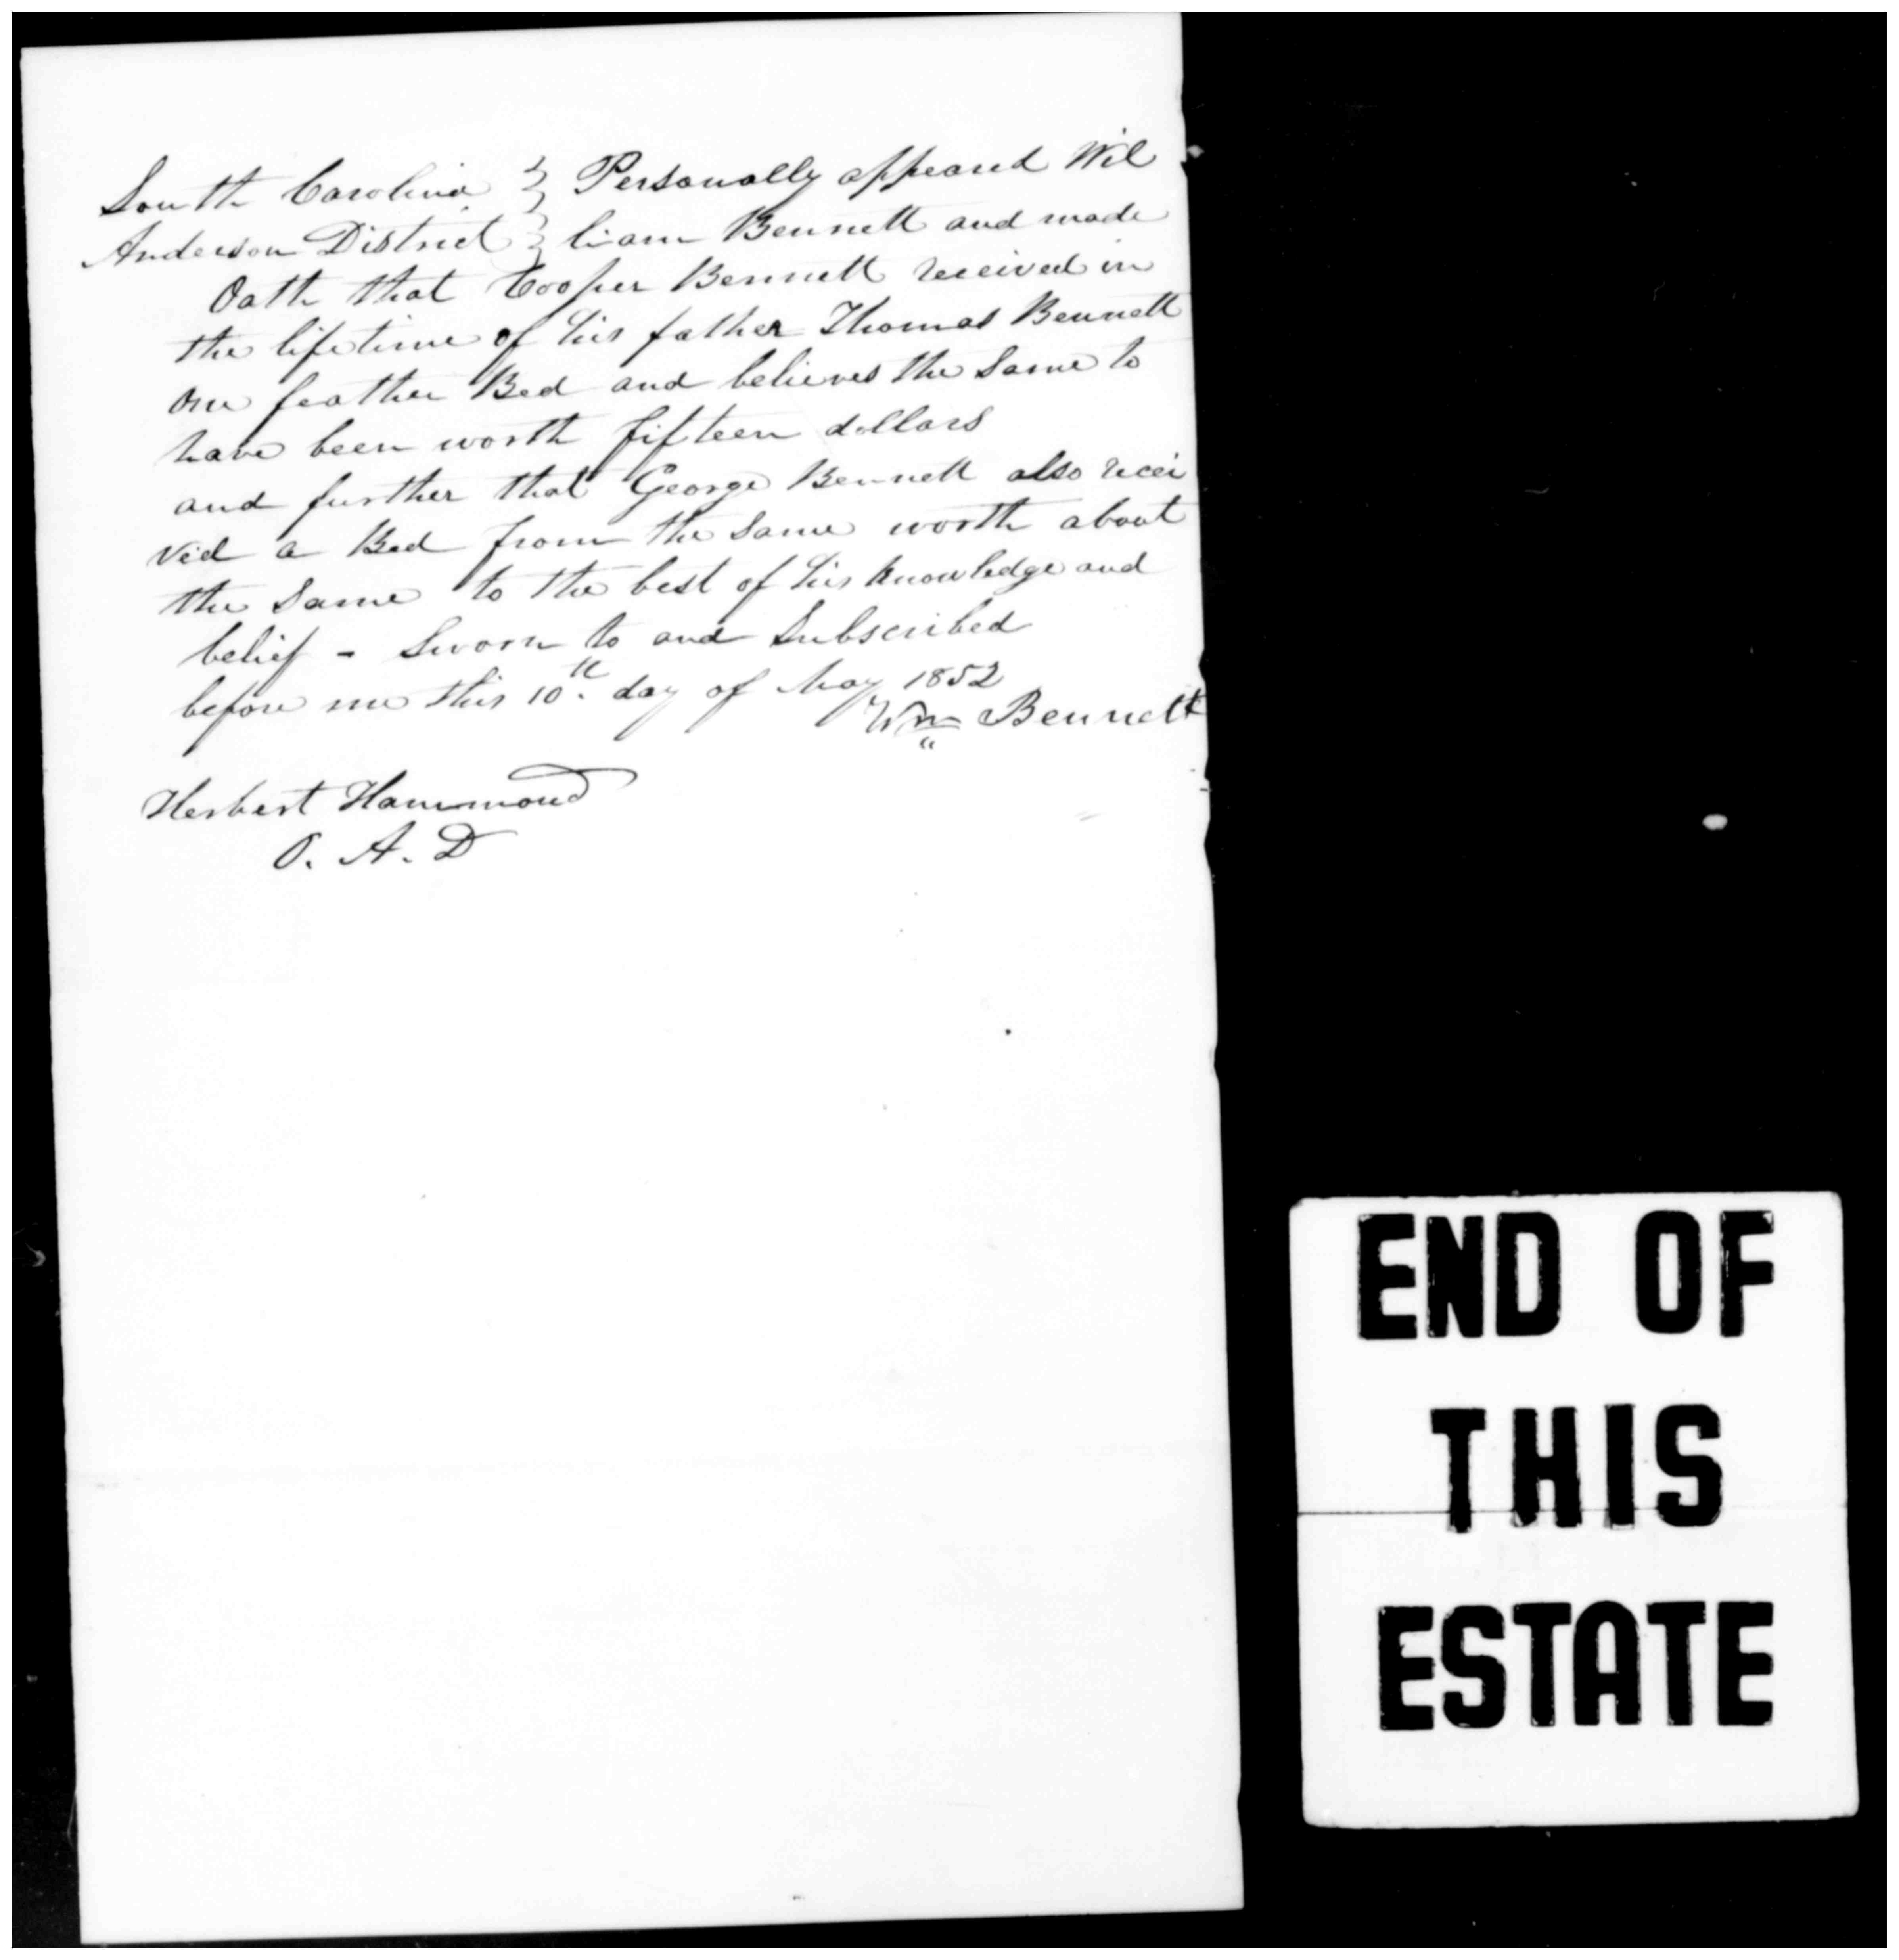 South Carolina } Personally appeared Wil
Anderson District } liam Bennett and made
Oath that Cooper Bennett received in
the lifetime of his father Thomas Bennett
one feather Bed and believes the Same to
have been worth fifteen dollars
and further that George Bennett also recei
ved a Bed from the Same worth about
the Same to the best of his knowledge and
belief - Sworn to and Subscribed
before me this 10th day of May 1852
Wm Bennett
Herbert Hammond
O. A. D
END OF
THIS
ESTATE